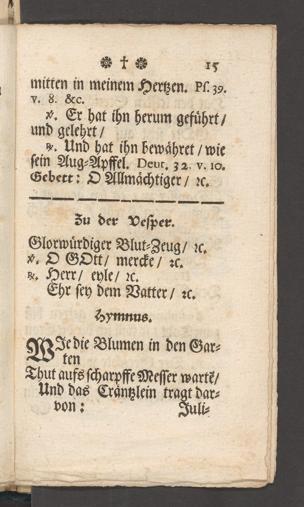 ❁ † ❁ 15
mitten in meinem Hertzen. Ps. 39.
v. 8. &c.
℣. Er hat ihn herum geführt/
und gelehrt/
℟. Und hat ihn bewähret/ wie
sein Aug-Apffel. Deut. 32. v. 10.
Gebett: O Allmächtiger/ ꝛc.
Zu der Vesper.
Glorwürdiger Blut-Zeug/ ꝛc.
℣. O GOtt/ mercke/ ꝛc.
℟. Herr/ eyle/ ꝛc.
Ehr sey dem Vatter/ ꝛc.
Hymnus.
WIe die Blumen in den Gar-
ten
Thut aufs scharpffe Messer wartē/
Und das Cräntzlein tragt dar-
von: Juli-